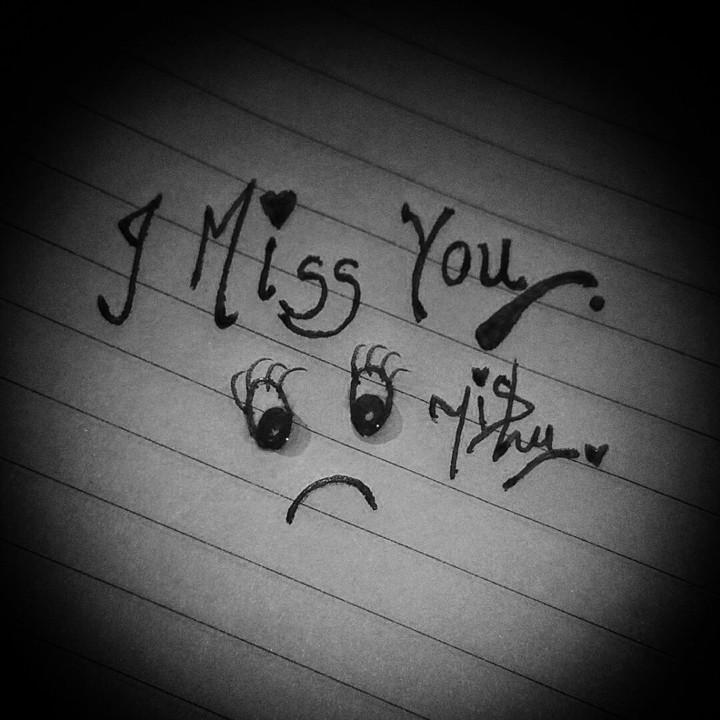 I Miss You.
Mishu